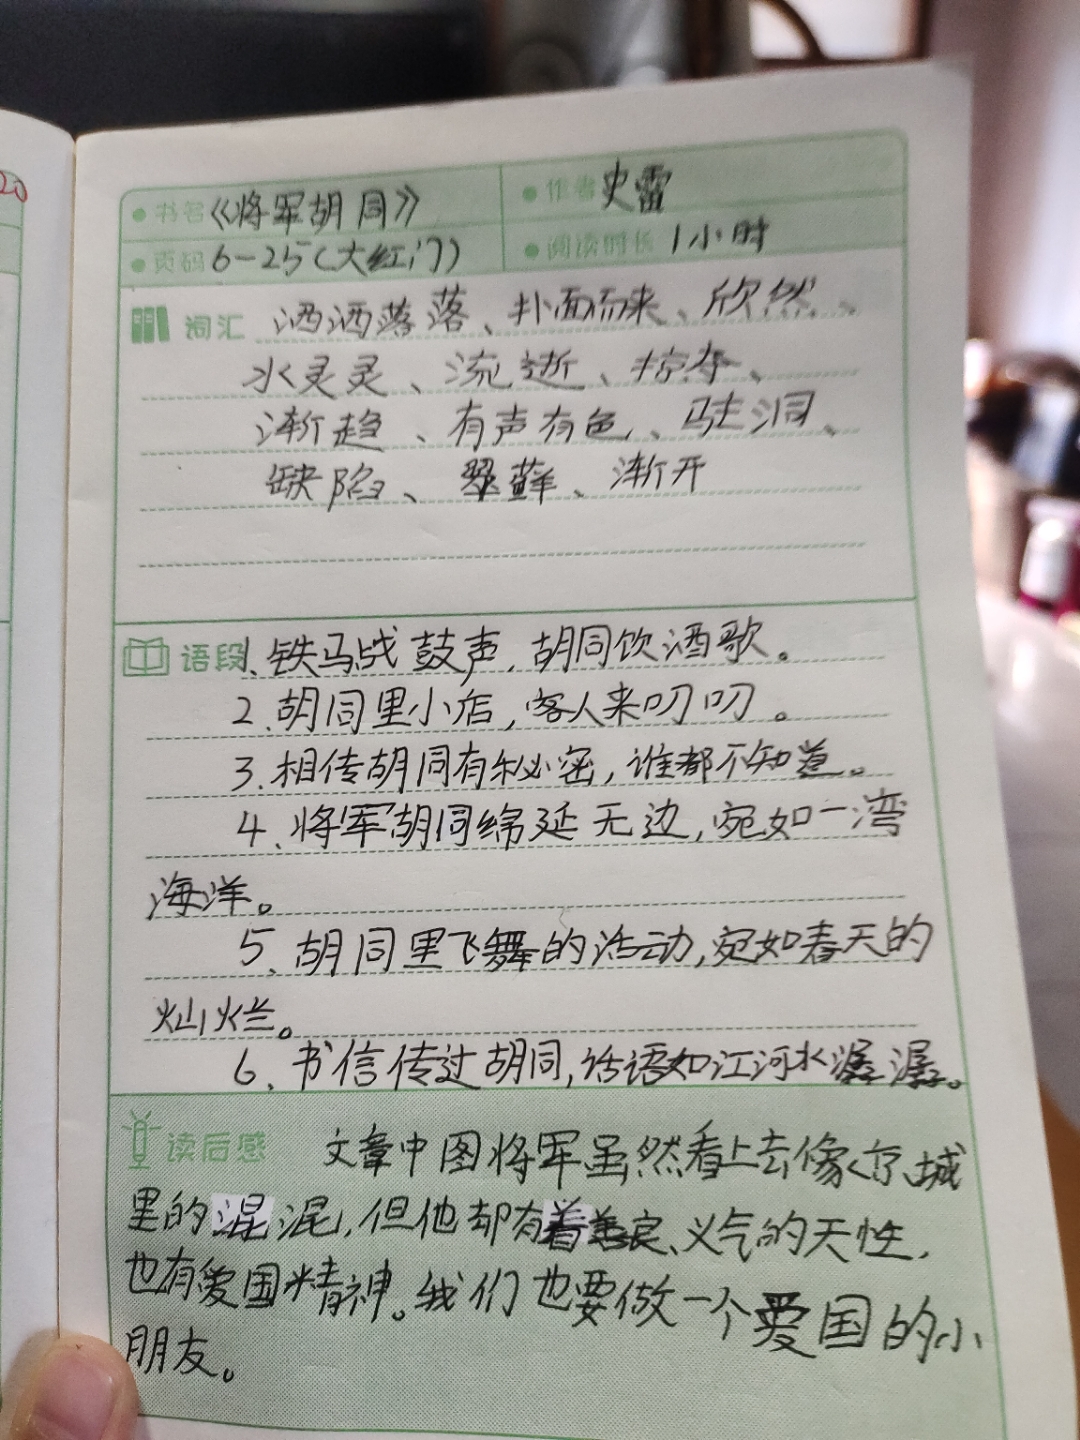 20
书名《将军胡同》
作者 史雷
页码 6-25(大红门)
阅读时长 1小时
词汇 洒洒落落、扑面而来、欣然、
水灵灵、流逝、掠夺、
渐趋、有声有色、驻洞、
缺陷、翠藓、渐开
语段 1、铁马战鼓声，胡同饮酒歌。
2、胡同里小店，客人来叨叨。
3、相传胡同有秘密，谁都不知道。
4、将军胡同绵延无边，宛如一湾
海洋。
5、胡同里飞舞的活动，宛如春天的
灿烂。
6、书信传过胡同，话语如江河水潺潺。
读后感 文章中图将军虽然看上去像京城
里的混混，但他却有着善良、义气的天性，
也有爱国精神。我们也要做一个爱国的小
朋友。